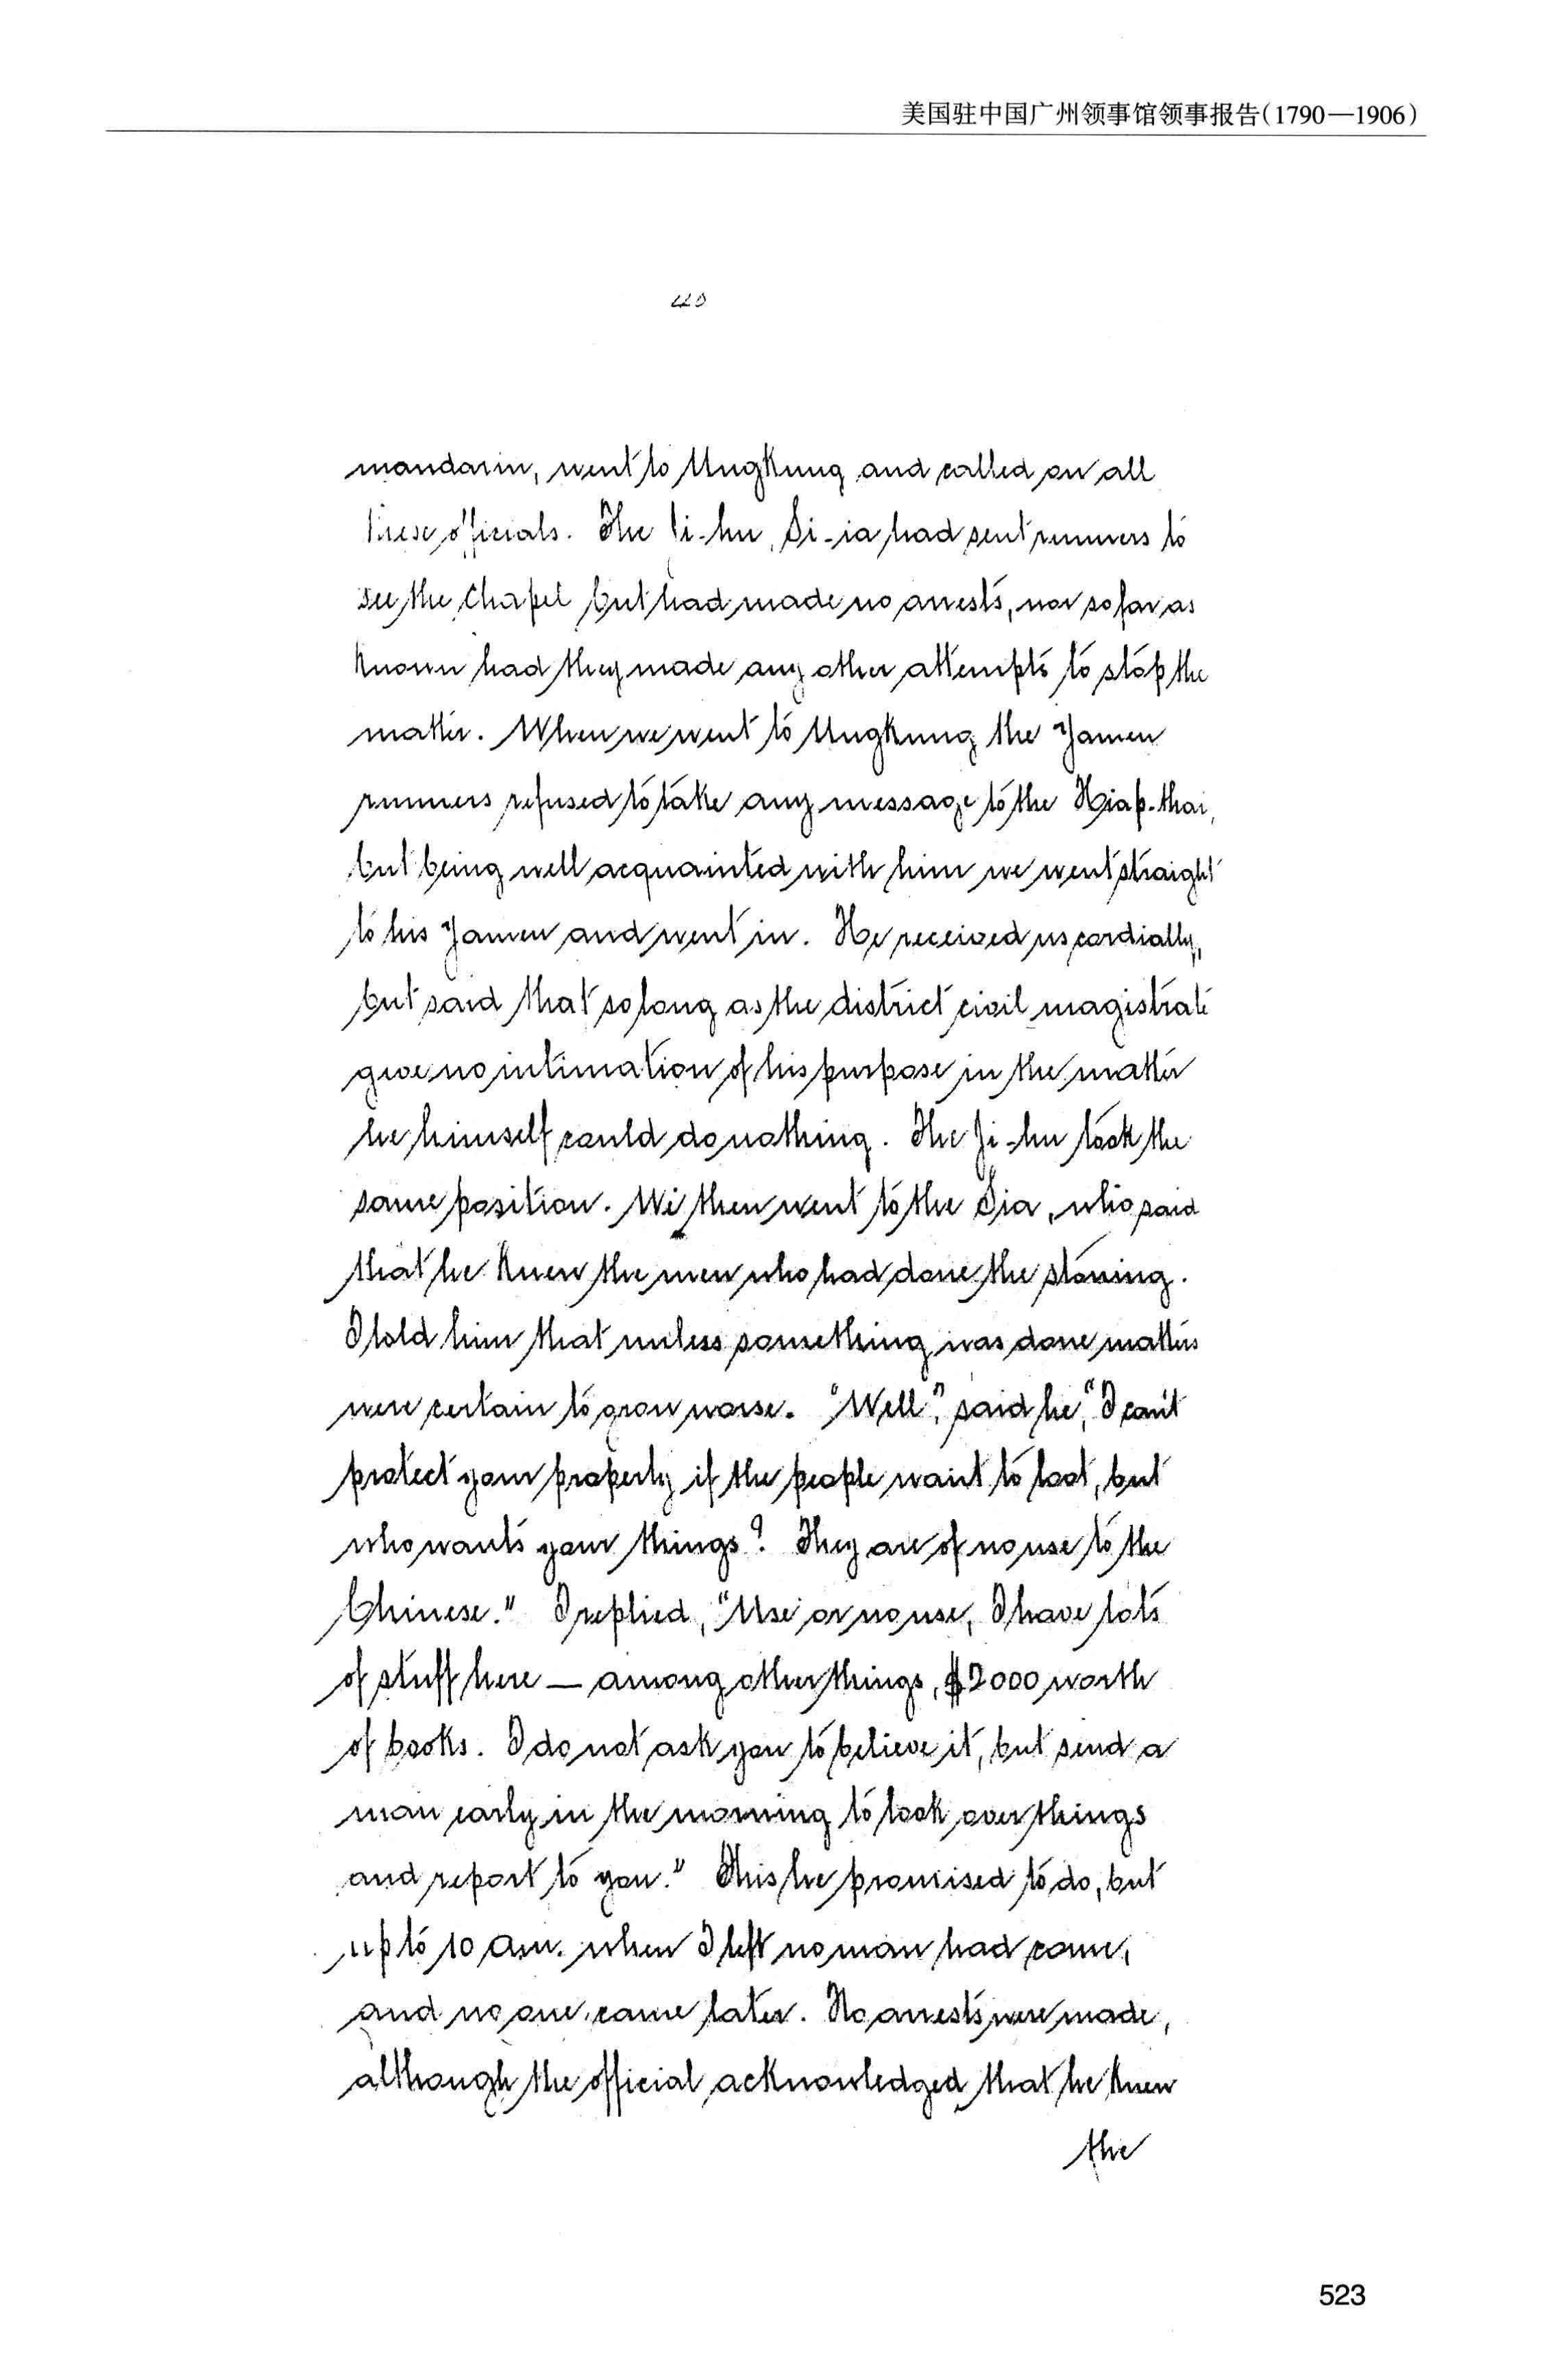 美国驻中国广州领事馆领事报告(1790—1906)
mandarin, went to Ungkung and called on all
these officials. The Ji-hu, Si-ia had sent runners to
see the Chapel but had made no arrests, nor so far as
known had they made any other attempts to stop the
matter. When we went to Ungkung the Yamen
runners refused to take any message to the Hiap-thai,
but being well acquainted with him we went straight
to his Yamen and went in. He received us cordially,
but said that so long as the district civil magistrate
give no intimation of his purpose in the matter
he himself could do nothing. The Ji-hu took the
same position. We then went to the Sia, who said
that he knew the men who had done the stoning.
I told him that unless something was done matters
were certain to grow worse. "Well", said he, "I can't
protect your property if the people want to loot, but
who wants your things? They are of no use to the
Chinese." I replied, "Use or no use, I have lots
of stuff here — among other things, $2000 worth
of books. I do not ask you to believe it, but send a
man early in the morning to look over things
and report to you." This he promised to do, but
up to 10 am. when I left no man had come,
and no one came later. No arrests were made,
although the official acknowledged that he knew
the
523